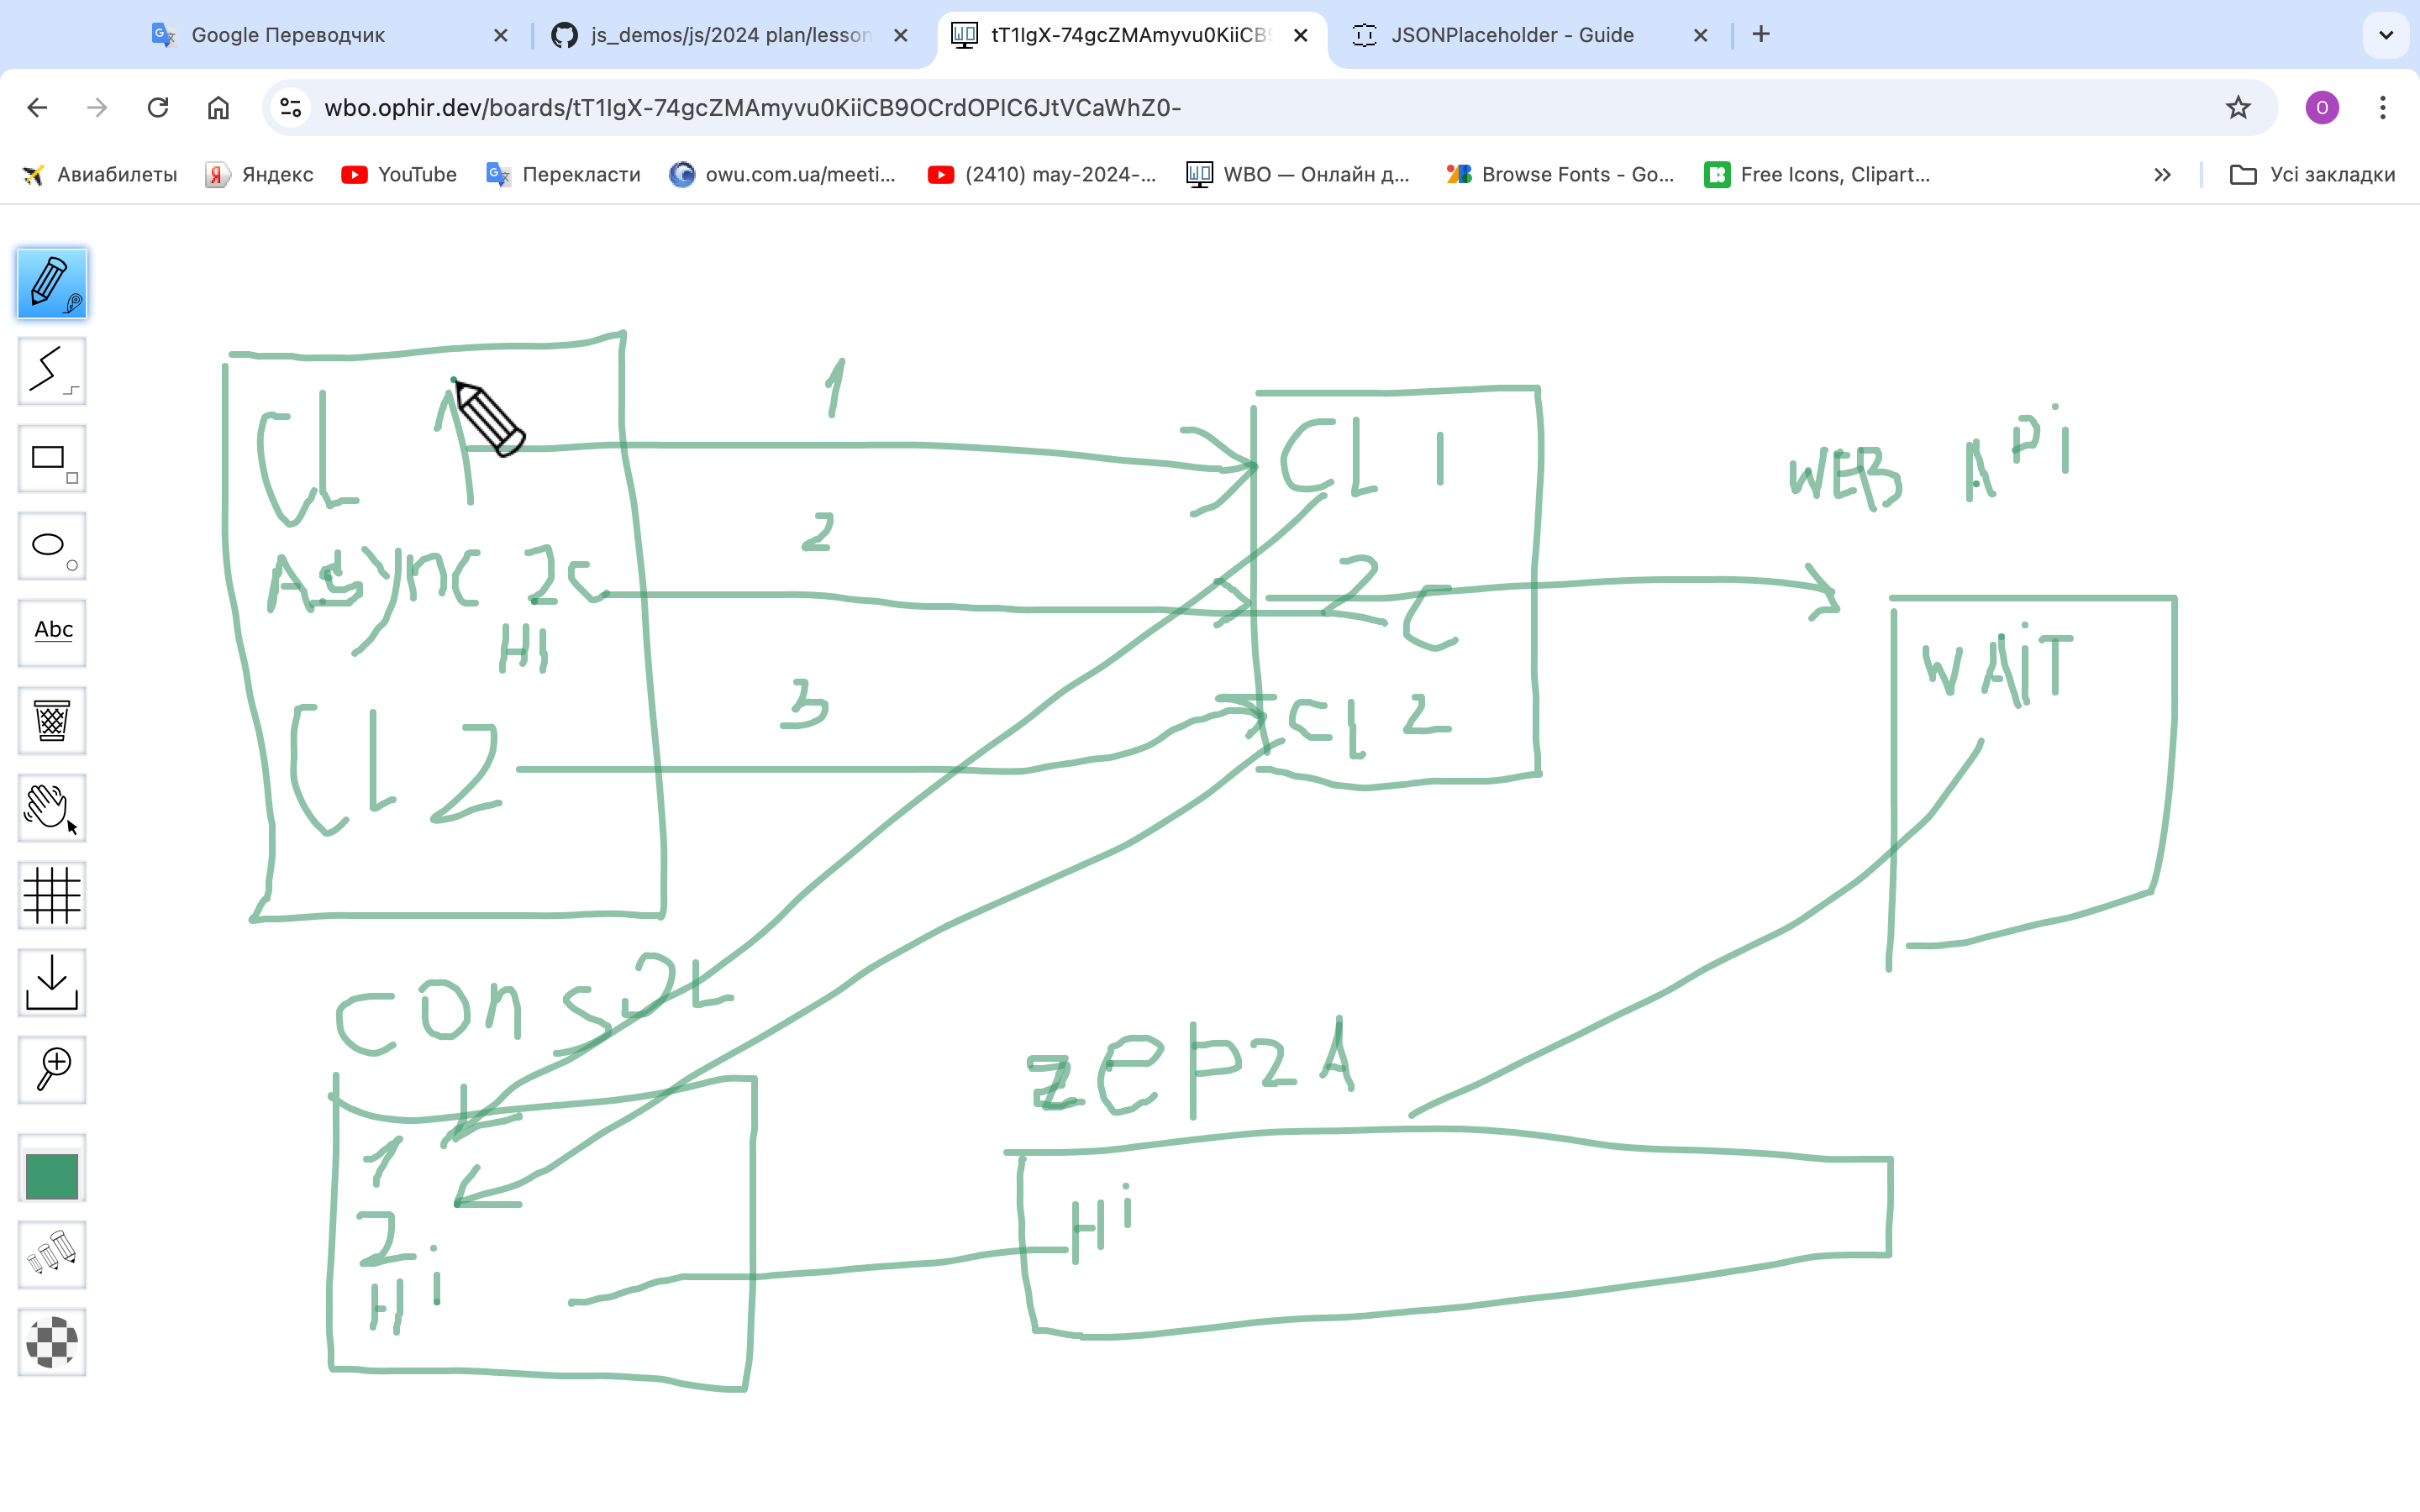 Google Переводчик
js_demos/js/2024 plan/lesson
tT1IgX-74gcZMAmyvu0KiiCB9
JSONPlaceholder - Guide
wbo.ophir.dev/boards/tT1IgX-74gcZMAmyvu0KiiCB9OCrdOPIC6JtVCaWhZ0-
O
Авиабилеты
Яндекс
YouTube
Перекласти
owu.com.ua/meeti...
(2410) may-2024-...
WBO — Онлайн д...
Browse Fonts - Go...
Free Icons, Clipart...
Усі закладки
Abc
CL 1
Async 2c
HI
CL 2
1
2
3
CL 1
2c
CL 2
WEB APi
WAiT
1
2
Hi
Hi